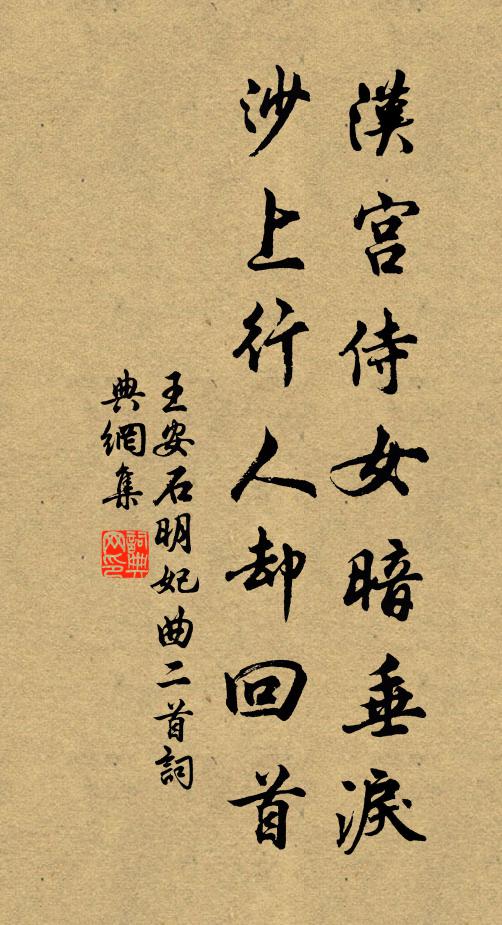 漢宮侍女暗垂淚
沙上行人却回首
王安石明妃曲二首詞
典網集
詞典
网印